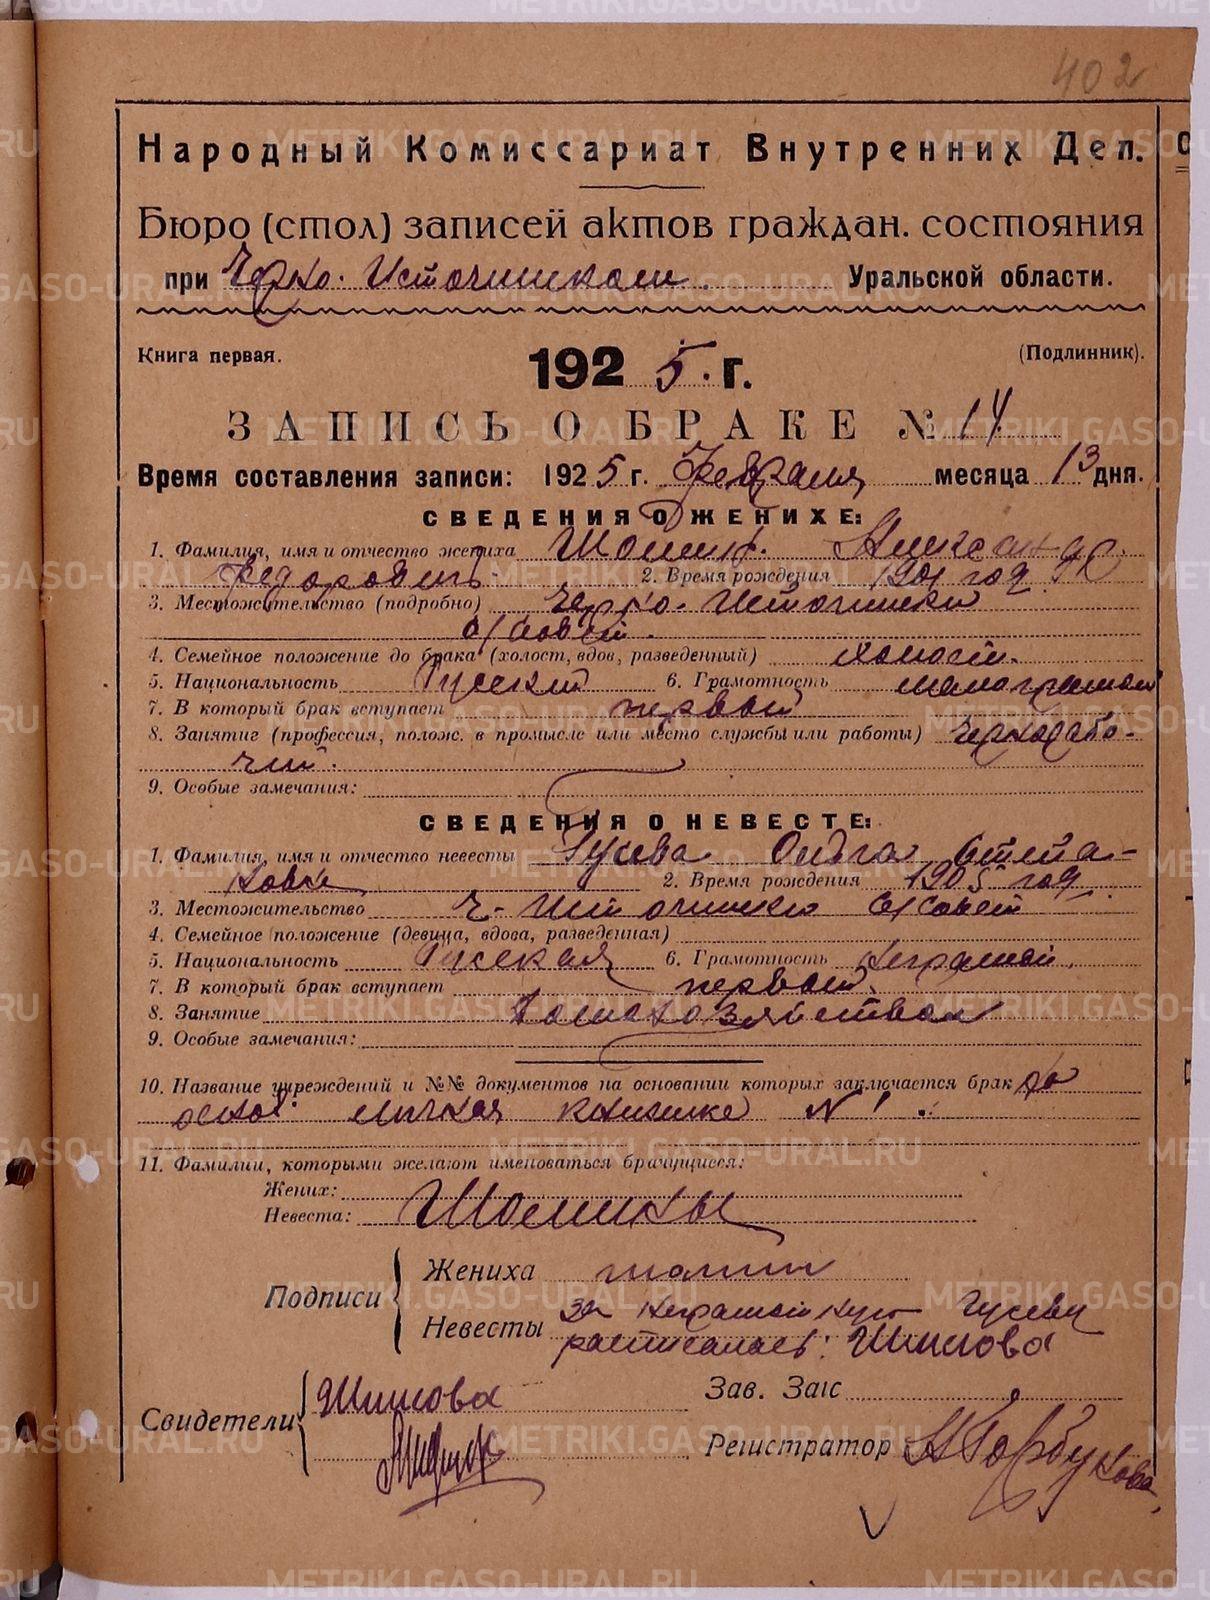 402
Народный Комиссариат Внутренних Дел.
Бюро (стол) записей актов граждан. состояния
при Черно-Источинском Уральской области.
Книга первая. 1925 г. (Подлинник).
ЗАПИСЬ О БРАКЕ № 14
Время составления записи: 1925 г. Февраля месяца 13 дня.
СВЕДЕНИЯ О ЖЕНИХЕ:
1. Фамилия, имя и отчество жениха Шомин Александр
Федорович 2. Время рождения 1901 год
3. Местожительство (подробно) Черно-Источински
с/совет.
4. Семейное положение до брака (холост, вдов, разведенный) холост.
5. Национальность Русский 6. Грамотность малограмот
7. В который брак вступает первый
8. Занятие (профессия, полож. в промысле или место службы или работы) Чернорабо-
чий.
9. Особые замечания:
СВЕДЕНИЯ О НЕВЕСТЕ:
1. Фамилия, имя и отчество невесты Гусева Ольга Степа-
новна 2. Время рождения 1905 год.
3. Местожительство Ч-Источински с/совет
4. Семейное положение (девица, вдова, разведенная)
5. Национальность Русская 6. Грамотность Неграмот.
7. В который брак вступает первый.
8. Занятие Домохозяйством
9. Особые замечания:
10. Название учреждений и №№ документов на основании которых заключается брак на
основ. личная книжке №1.
11. Фамилии, которыми желают именоваться брачущиеся:
Жених:
Невеста: Шомины
Подписи
Жениха Шомин
Невесты за неграмотную Гусеву
расписалась: Шишова
Свидетели Шишова
Зав. Загс
Регистратор Н Горбунова
METRIKI.GASO-URAL.RU